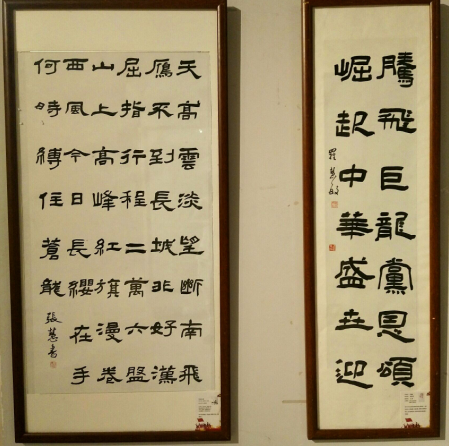 天高雲淡望斷南飛
鴈不到長城非好漢
屈指行程二萬六盤
山上高峰紅旗漫卷
西風今日長纓在手
何時縛住蒼龍
張慧書
騰飛巨龍黨恩頌
崛起中華盛世迎